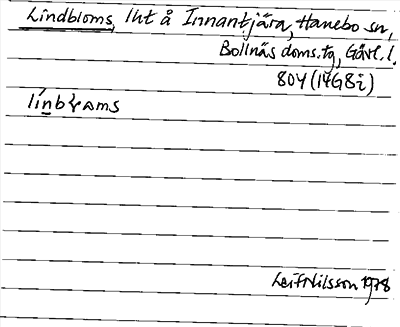 Lindbloms, lht å Innantjära, Hanebo sn,
Bollnäs doms.tg, Gävl. l.
80Y (14G8i)
línbɽɷms
Leif Nilsson 1978